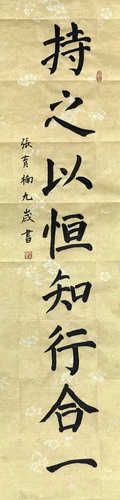 持之以恒知行合一
張育楠九歲書